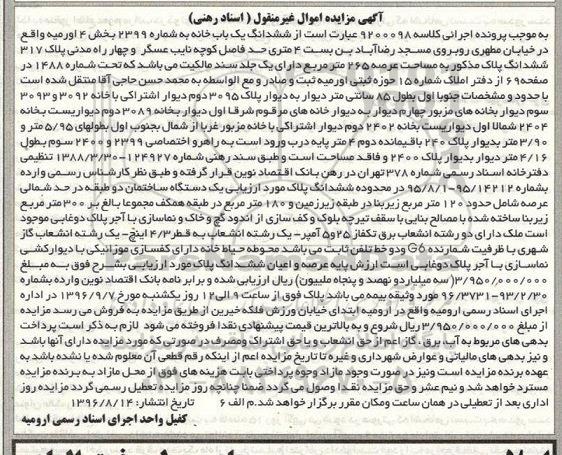 آگهی مزایده اموال غیرمنقول ( اسناد رهنی)
به موجب پرونده اجرائی کلاسه ۹۲۰۰۰۹۸ عبارت است از ششدانگ یک باب خانه به شماره ۲۳۹۹ بخش ۴ اورمیه واقع
در خیابان مطهری روبروی مسجد رضاآباد بن بست ۴ متری حد فاصل کوچه نایب عسگر و چهار راه مدنی پلاک ۳۱۷
ششدانگ پلاک مذکور به مساحت عرصه ۲۶۵ متر مربع دارای یک جلد سند مالکیت می باشد که تحت شماره ۱۴۸۸ در
صفحه ۶۹ از دفتر املاک شماره ۱۵ حوزه ثبتی اورمیه ثبت و صادر و مع الواسطه به محمد حسن حاجی آقا منتقل شده است
با حدود و مشخصات جنوبا اول بطول ۸۵ سانتی متر دیوار به دیوار پلاک ۳۰۹۵ دوم دیوار اشتراکی با خانه ۳۰۹۲ و ۳۰۹۳
سوم دیوار بخانه های مزبور چهارم دیوار به دیوار خانه های مرقوم شرقا اول دیوار بخانه ۳۰۸۹ دوم دیواریست بخانه
۲۴۰۴ شمالا اول دیواریست بخانه ۲۴۰۲ دوم دیوار اشتراکی با خانه مزبور غربا از شمال بجنوب اول بطولهای ۵/۹۵ متر و
۳/۹۰ متر دیوار بدیوار پلاک ۲۴۰۰ باقیمانده دوم ۴ متر پایه درب ورود است به راهرو اختصاصی ۲۳۹۹ و ۲۴۰۰ سوم بطول
۴/۱۶ متر دیوار بدیوار پلاک ۲۴۰۰ و فاقد مساحت است و طبق سند رهنی شماره ۱۲۴۹۲۷-۱۳۸۸/۳/۳۰ تنظیمی
دفترخانه اسناد رسمی شماره ۳۷۸ تهران در رهن بانک اقتصاد نوین قرار گرفته و طبق نظر کارشناس رسمی وارده
بشماره ۹۵/۱۴۲۱۲-۹۵/۸/۱ در محدوده ششدانگ پلاک مورد ارزیابی یک دستگاه ساختمان دو طبقه در حد شمالی
عرصه شامل حدود ۱۲۰ متر مربع زیربنا در طبقه زیرزمین و ۱۸۰ متر مربع در طبقه همکف مجموعا بالغ بر ۳۰۰ متر مربع
زیربنا ساخته شده با مصالح بنایی با سقف تیرچه بلوک و کف سازی از اندود گچ و خاک و نماسازی با آجر پلاک دوغابی موجود
است ملک دارای دو رشته انشعاب برق تکفاز ۲۵و۵ آمپر- یک رشته انشعاب به قطر ۴/۳ اینچ- یک رشته انشعاب گاز
شهری با ظرفیت شمارنده G6 و دو خط تلفن ثابت می باشد محوطه حیاط خانه دارای کفسازی موزائیکی با دیوارکشی
نماسازی با آجر پلاک دوغابی است ارزش پایه عرصه و اعیان ششدانگ پلاک مورد ارزیابی بشرح فوق به مبلغ
۳/۹۵۰/۰۰۰/۰۰۰(سه میلیارد نهصد و پنجاه ملییون) ریال ارزیابی شده و برابر نامه بانک اقتصاد نوین وارده بشماره
۹۶/۳۷۳۱-۹۳/۲/۳۰ مورد وثیقه بیمه می باشد پلاک فوق از ساعت ۹ الی ۱۲ روز یکشنبه مورخ ۱۳۹۶/۹/۷ در اداره
اجرای اسناد رسمی ارومیه واقع در ارومیه ابتدای خیابان ورزش فلکه خیرین از طریق مزایده به فروش می رسد مزایده
از مبلغ ۳/۹۵۰/۰۰۰/۰۰۰ ریال شروع و به بالاترین قیمت پیشنهادی نقدا فروخته می شود لازم به ذکر است پرداخت
بدهی های مربوط به آب، برق، گاز اعم از حق انشعاب و یا حق اشتراک و مصرف در صورتی که مورد مزایده دارای آنها باشد
و نیز بدهی های مالیاتی و عوارض شهرداری و غیره تا تاریخ مزایده اعم از اینکه رقم قطعی آن معلوم شده یا نشده باشد به
عهده برنده مزایده است ونیز در صورت وجود مازاد وجوه پرداختی بابت هزینه های فوق از محل مازاد به برنده مزایده
مسترد خواهد شد و نیم عشر و حق مزایده نقدا وصول می گردد ضمنا چنانچه روز مزایده تعطیل رسمی گردد مزایده روز
اداری بعد از تعطیلی در همان ساعت ومکان مقرر برگزار خواهد شد.م الف ۶ تاریخ انتشار: ۱۳۹۶/۸/۱۴
کفیل واحد اجرای اسناد رسمی ارومیه